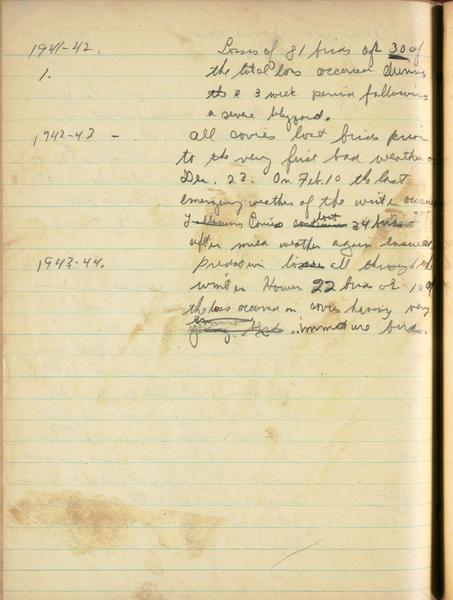 1941-42. Losses of 81 birds or 30 of
1. the total loss occurred during
the 3 week period following
a severe blizzard.
1942-43 - All covies lost birds prior
to the very first bad weather
Dec. 23. On Feb. 10 the last
emergency weather of the winter
Following Covies lost 34 birds
after mild weather again
1943-44. Predation losse all through the
winter However 22 birds or 10
the loss occurred in covies having very
immature birds.